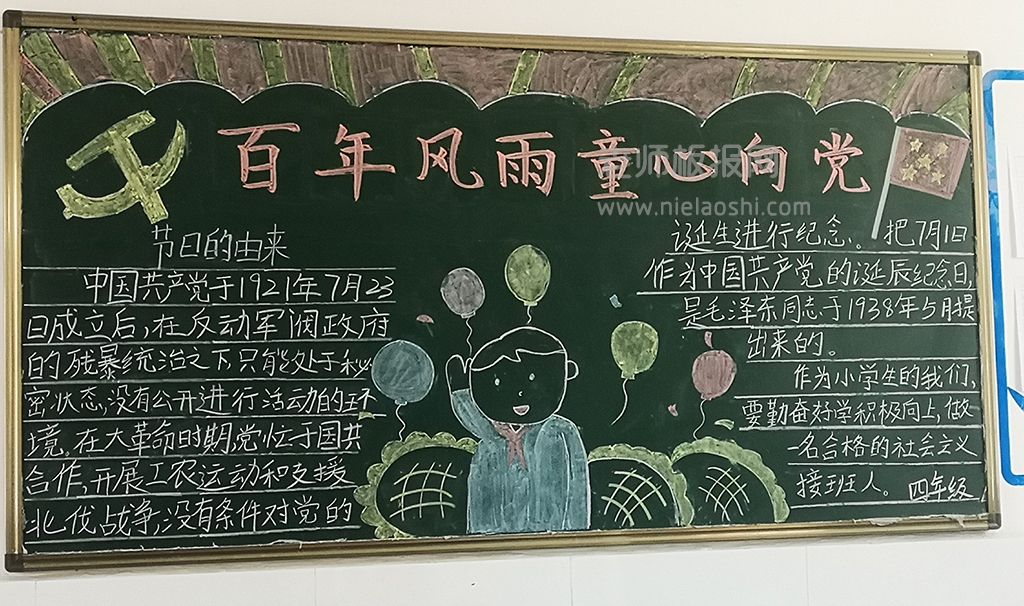 百年风雨童心向党
www.nielaoshi.com
节日的由来
中国共产党于1921年7月23
日成立后,在反动军阀政府
的残暴统治之下只能处于秘
密状态,没有公开进行活动的环
境。在大革命时期,党忙于国共
合作,开展工农运动和支援
北伐战争,没有条件对党的
诞生进行纪念。把7月1日
作为中国共产党的诞辰纪念日,
是毛泽东同志于1938年5月提
出来的。
作为小学生的我们,
要勤奋好学积极向上,做
一名合格的社会主义
接班人。四年级